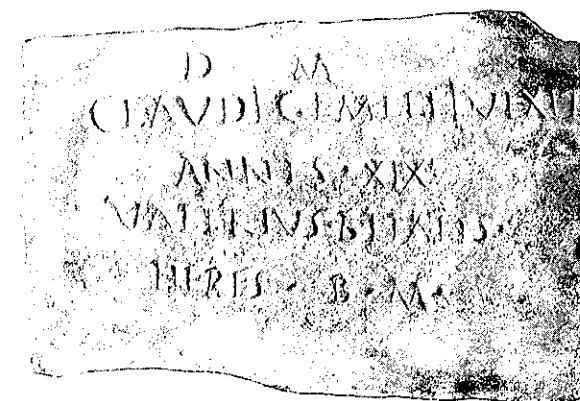 D M
CLAVDI GEMELLI VIXIT
ANNIS · XIX
VALERIVS · BITALIS ·
HERES · B · M ·